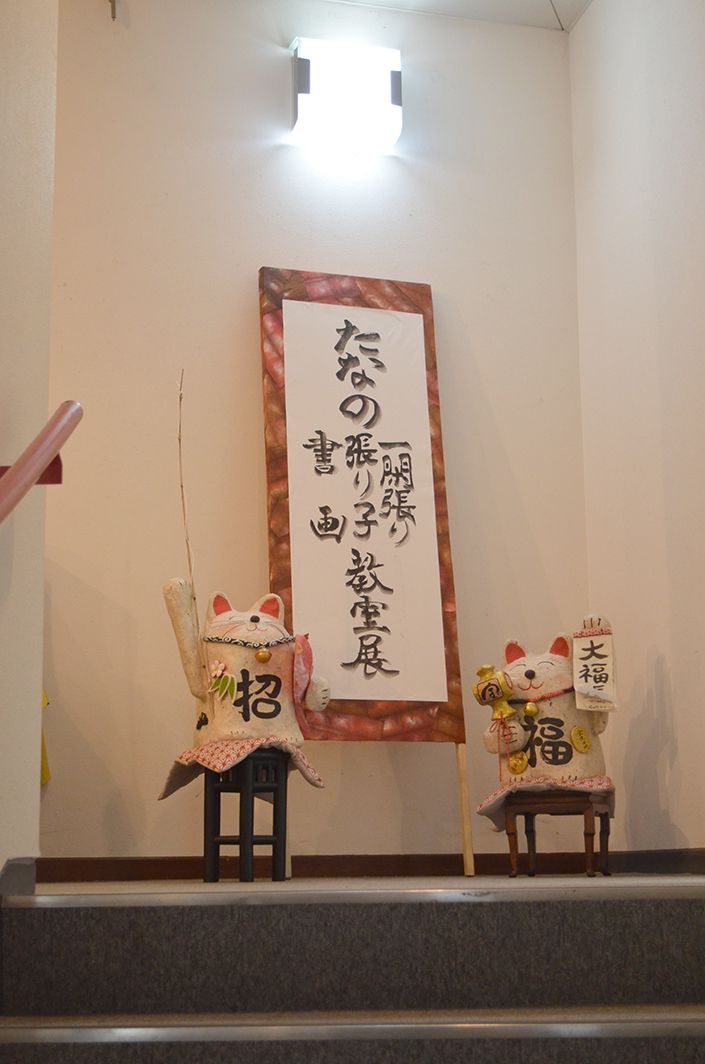 たなの
一閑張り
張り子
書画
教室展
招
福
大福